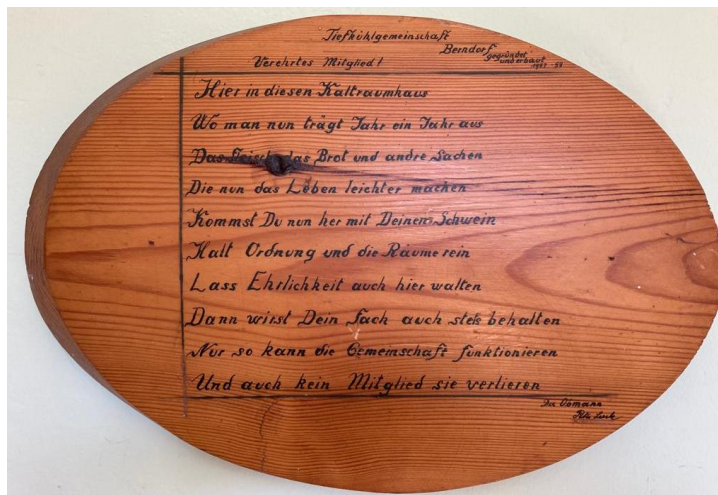 Tiefkühlgemeinschaft
Berndorf
gegründet
und erbaut
Verehrtes Mitglied!
Hier in diesen Kaltraumhaus
Wo man nun trägt Jahr ein Jahr aus
Das Fleisch das Brot und andre Sachen
Die nun das Leben leichter machen
Kommst Du nun her mit Deinen Schwein
Halt Ordnung und die Räume rein
Lass Ehrlichkeit auch hier walten
Dann wirst Dein Fach auch stets behalten
Nur so kann die Gemeinschaft funktionieren
Und auch kein Mitglied sie verlieren
Obmann